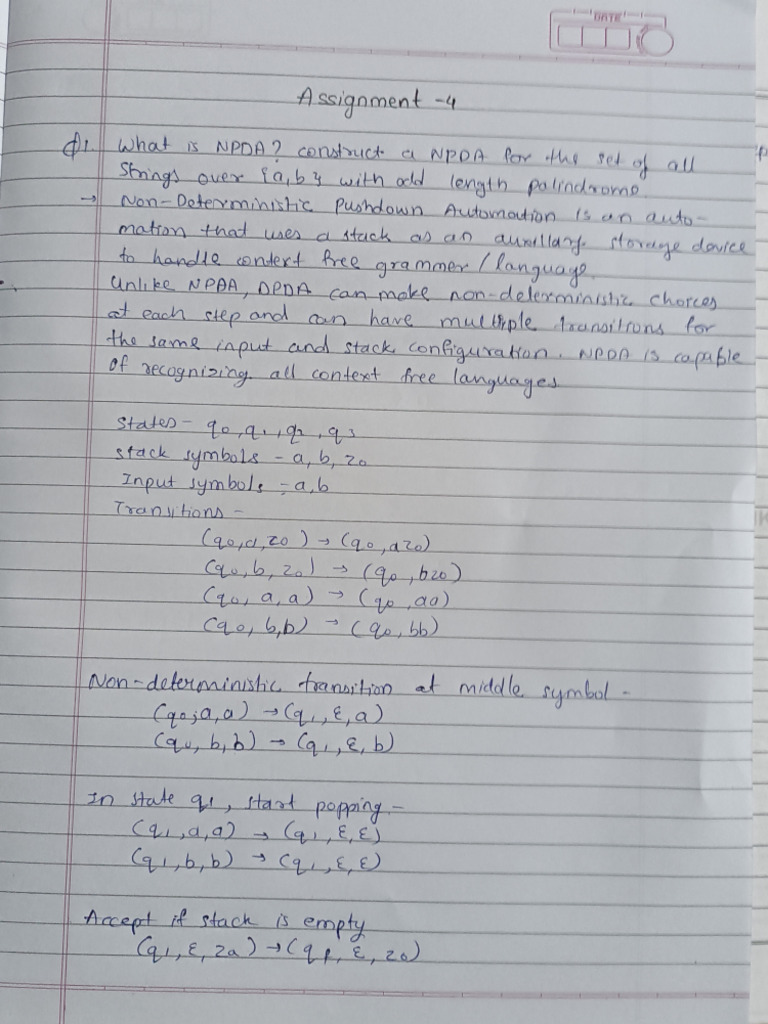 DATE
Assignment -4
Q1. What is NPDA? construct a NPDA for the set of all
strings over {a,b} with odd length palindrome.
→ Non-Deterministic Pushdown Automation is an auto-
mation that uses a stack as an auxillary storage device
to handle context free grammer / language.
Unlike NPDA, DPDA can make non-deterministic choices
at each step and can have multiple transitions for
the same input and stack configuration. NPDA is capable
of recognizing all context free languages
States - q0, q1, q2, q3
stack symbols - a, b, z0
Input symbols - a, b
Tranitions -
(q0, a, z0) → (q0, az0)
(q0, b, z0) → (q0, bz0)
(q0, a, a) → (q0, aa)
(q0, b, b) → (q0, bb)
Non-deterministic transition at middle symbol -
(q0, a, a) → (q1, ε, a)
(q0, b, b) → (q1, ε, b)
In state q1, start popping -
(q1, a, a) → (q1, ε, ε)
(q1, b, b) → (q1, ε, ε)
Accept if stack is empty
(q1, ε, za) → (qf, ε, z0)